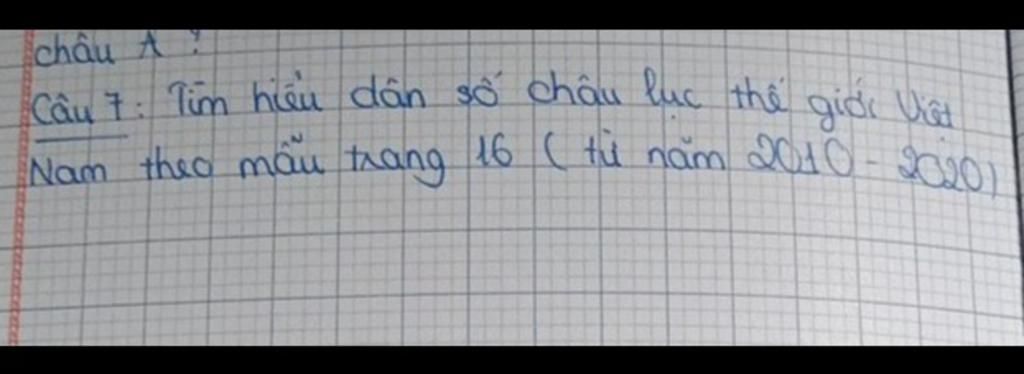 châu Á ?
Câu 7: Tìm hiểu dân số châu lục thế giới Việt
Nam theo mẫu trang 16 ( từ năm 2010 - 2020)